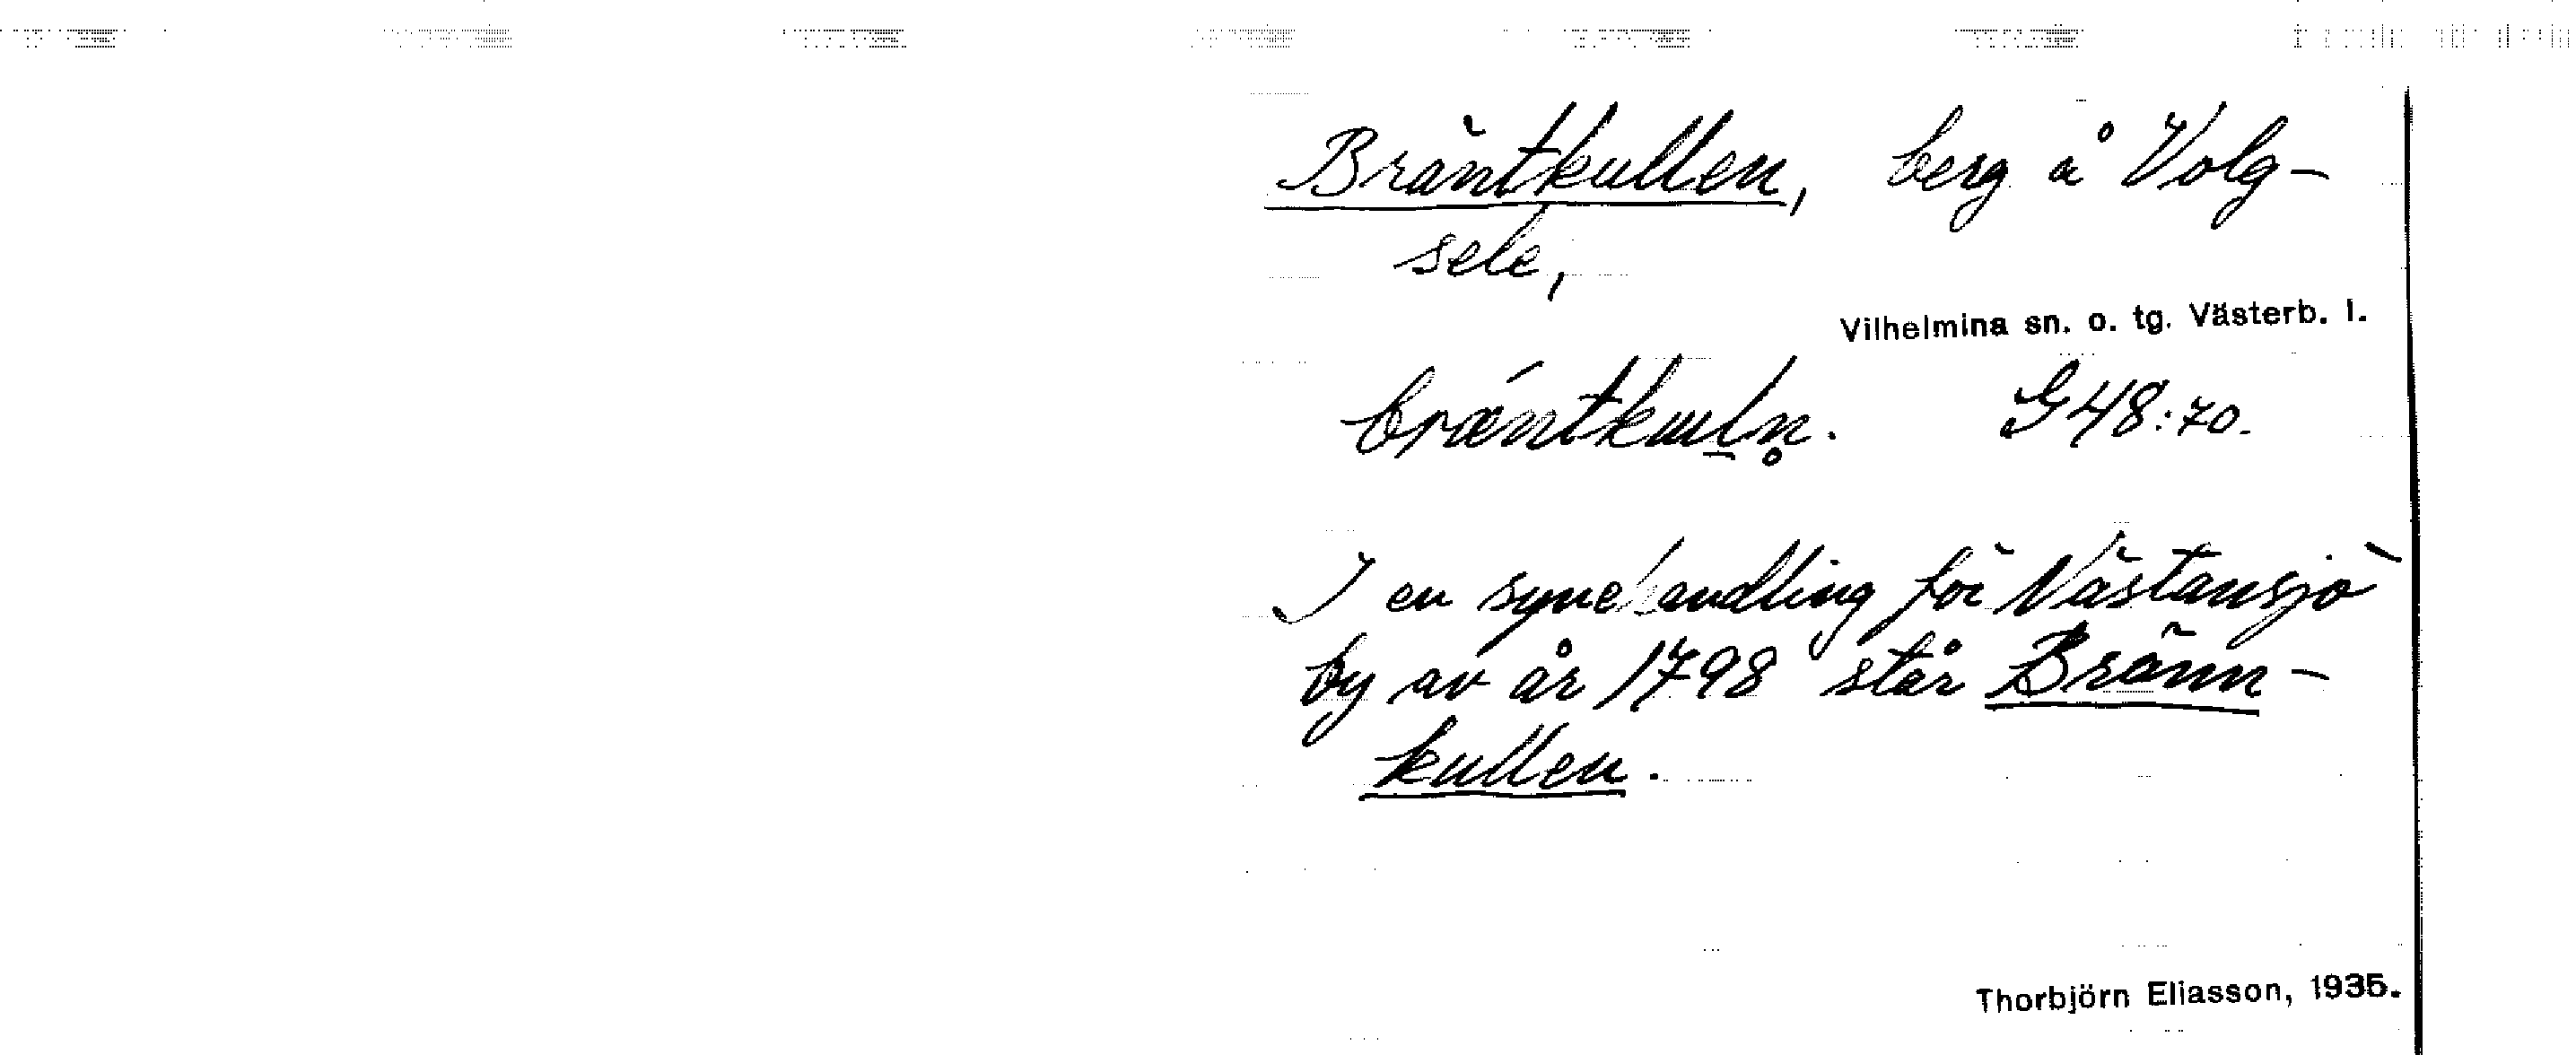 Bräntkullen, berg å Volg-
sele,
Vilhelmina sn. o. tg. Västerb. l.
G 48:70.
I en synehandling för Västansjö
by av år 1798 står Bränn-
kullen.
Thorbjörn Eliasson, 1935.